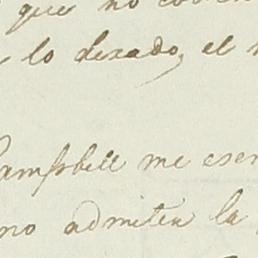 que no
lo dexado, el
Campbell me
no admiten la